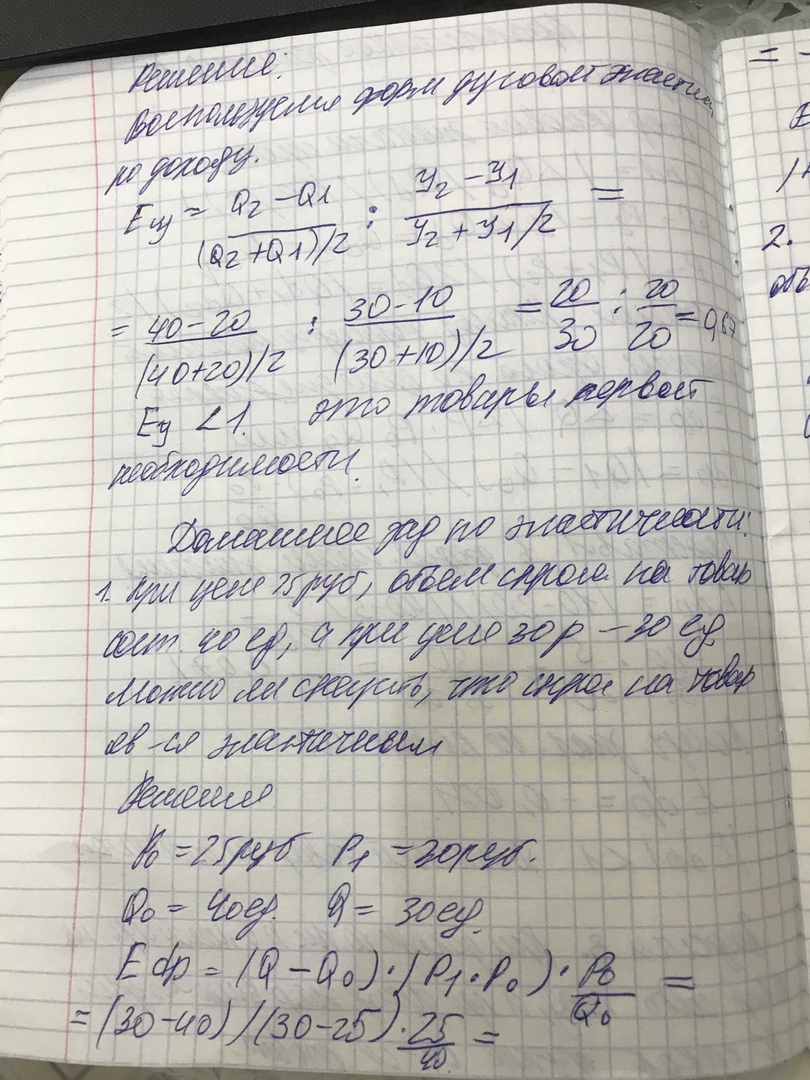 Решение:
Воспользуемся форм дуговой эластич
по доходу.
Eу = Q2 - Q1 / (Q2 + Q1)/2 : У2 - У1 / У2 + У1/2 =
= 40-20 / (40+20)/2 : 30-10 / (30+10)/2 = 20/30 : 20/20 = 0,67
Eу < 1. это товары первой
необходимости.
Домашнее зад по эластичности:
1. При цене 25 руб, объем спроса на товар
сост. 40 ед, а при цене 30 р – 30 ед
Можно ли сказать, что спрос на товар
яв-ся эластичным
Решение
P0 = 25 руб P1 = 30 руб.
Q0 = 40 ед. Q = 30 ед.
E dp = (Q - Q0) · (P1 · P0) · P0/Q0 =
= (30-40) / (30-25) · 25/40 =
= -
E
2.
объ